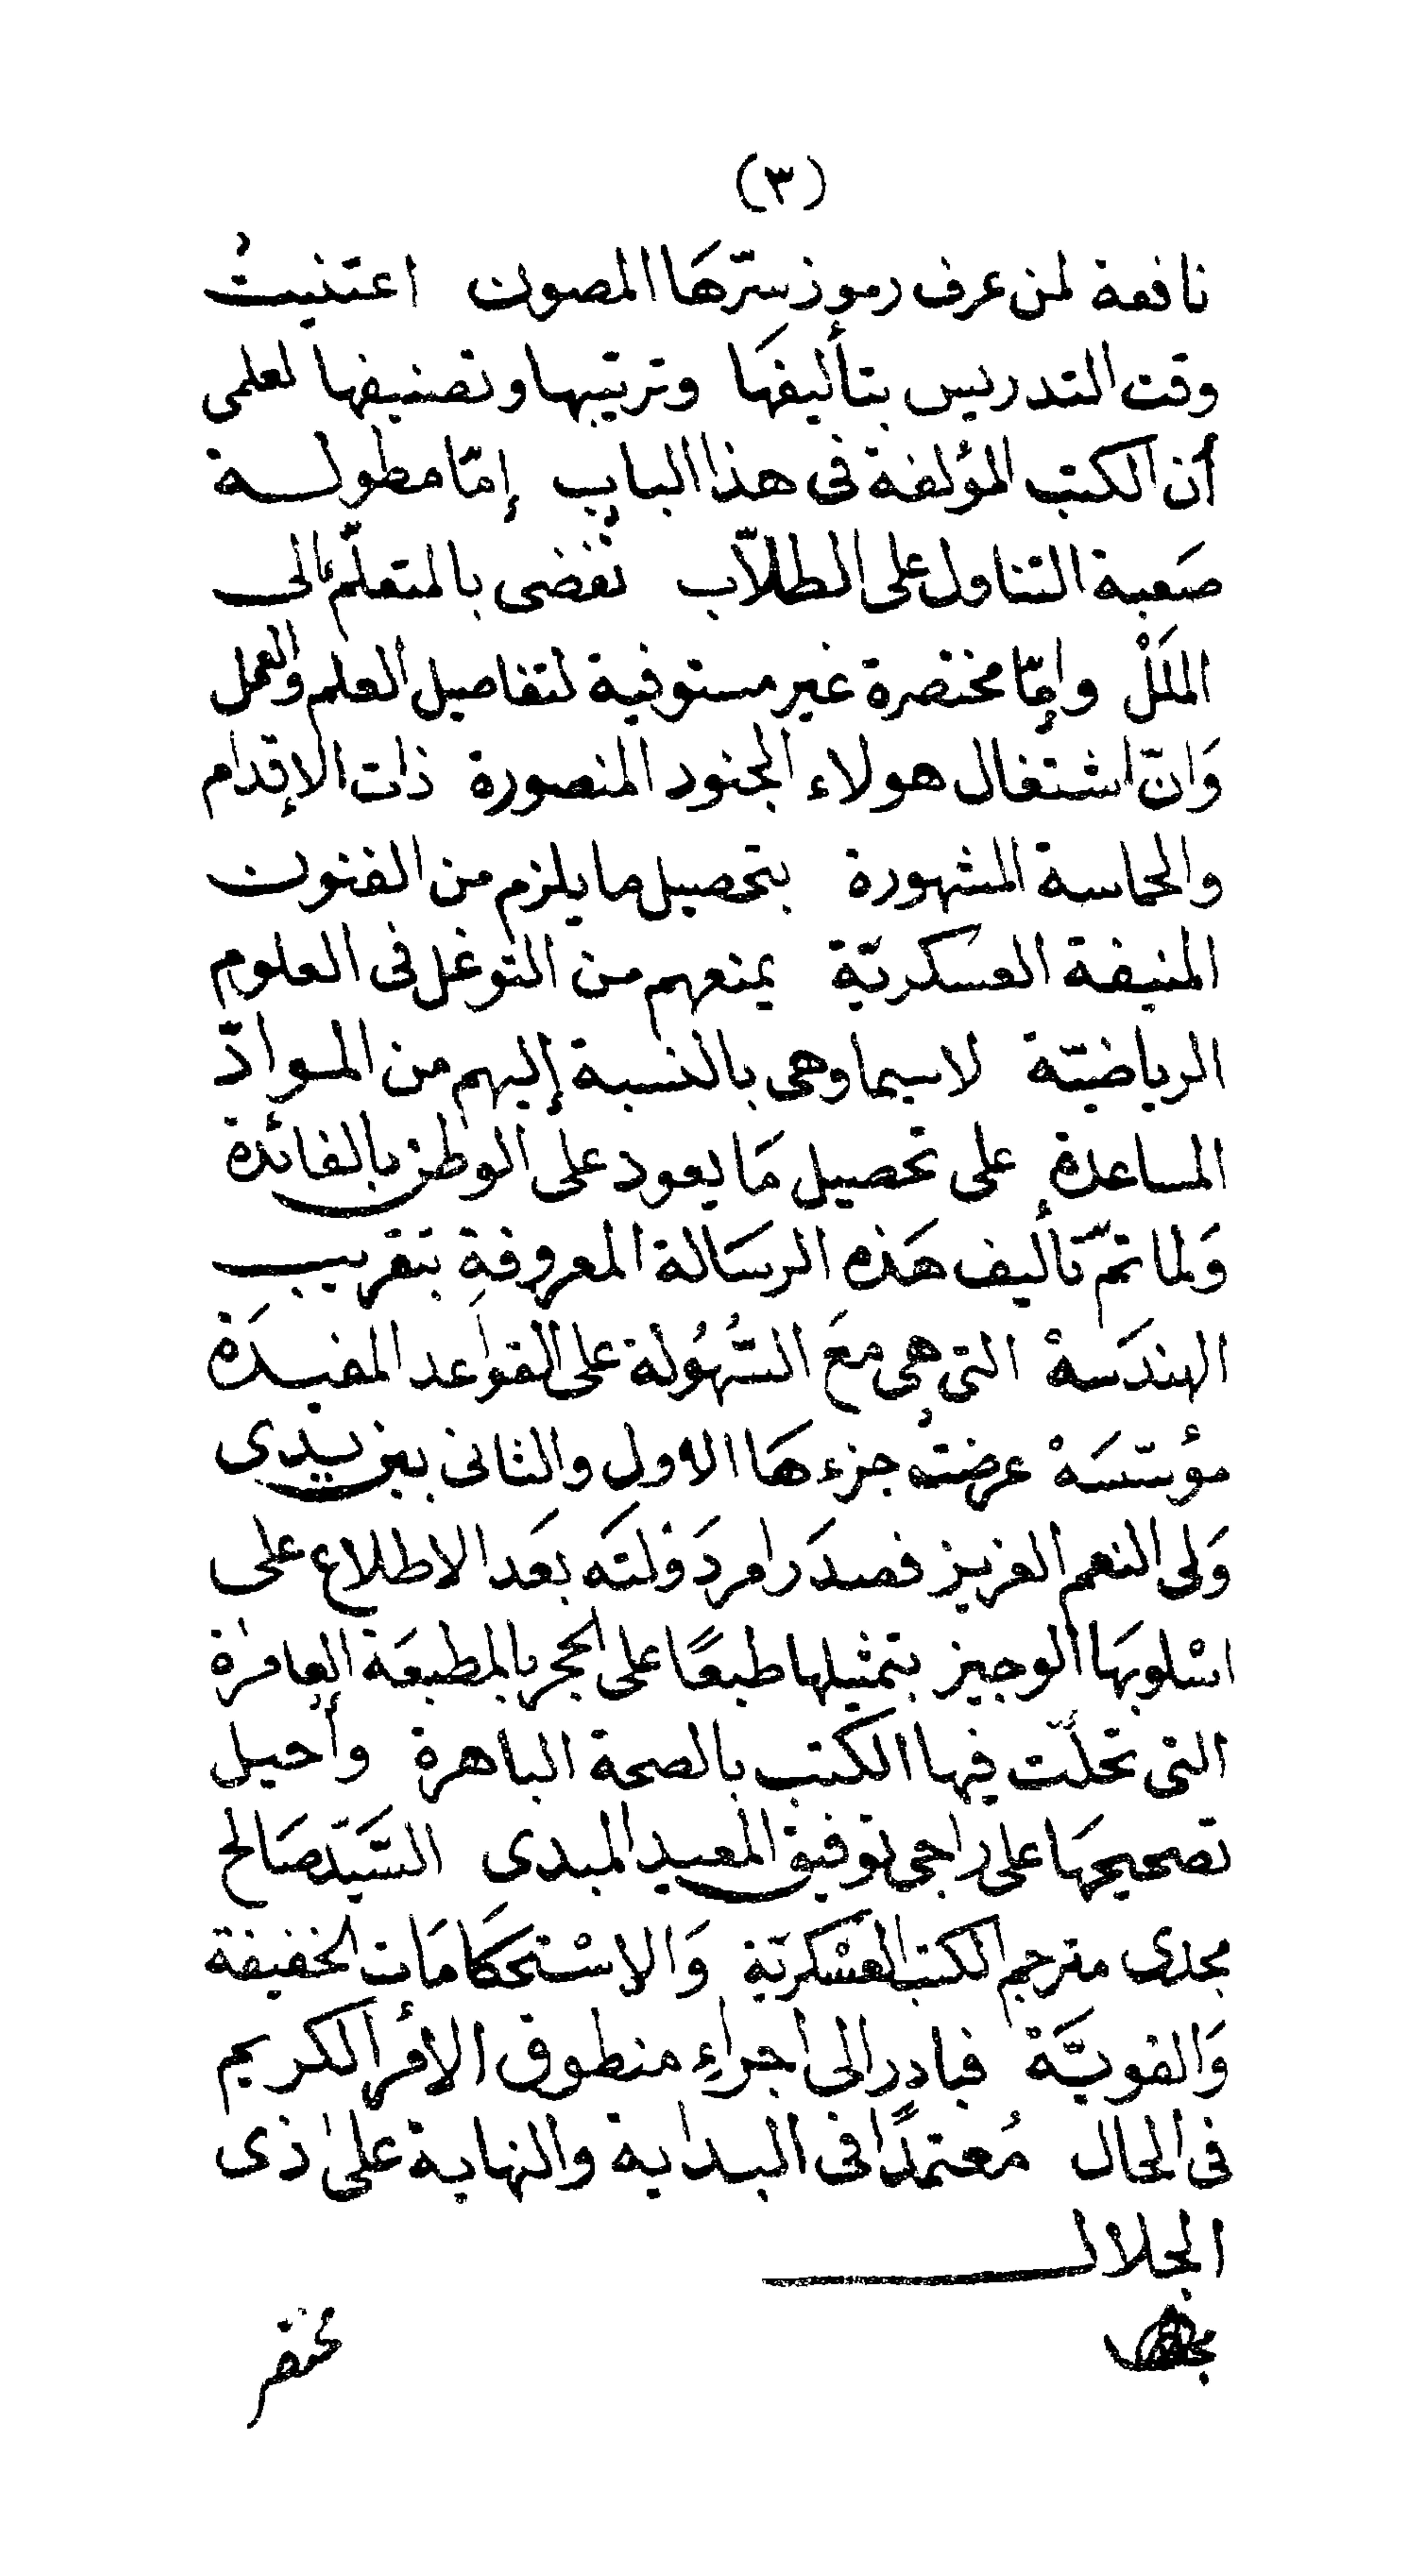 (٣)
نافعة لمن عرف رموز سرّهَا المصون اعتنيتُ
وقت التدريس بتأليفهَا وترتيبها وتصنيفها لعلمى
أن الكتب المؤلفة فى هذا الباب إمّا مطولة
صَعبة التناول على الطلاّب تُفضى بالمتعلّم الى
الملَلْ وإمّا مختصرة غير مستوفية لتفاصيل العلم والعمل
وَانّ اشتغال هولاء الجنود المنصورة ذات الإقدام
والحماسة المشهورة بتحصيل ما يلزم من الفنون
المنيفة العسكريّة يمنعهم من التوغل فى العلوم
الرياضيّة لاسيما وهى بالنسبة إليهم من الموادّ
المساعدة على تحصيل مَا يعود على الوطن بالفائدة
وَلما تمّ تأليف هَذه الرسَالة المعروفةِ بتقريب
الهندَسهْ التى هى معَ السُّهُولة على القواعد المفيدَة
مؤسّسَهْ عرضتُ جزءهَا الاول والثانى بين يدى
وَلى النعم العزيز فصدَر امر دَوْلتَه بعَد الاطلاع على
اسْلوبهَا الوجيز بتمثيلها طبعًا على الحجر بالمطبعَة العامرة
التى تحلّت فيها الكتب بالصحة الباهرة وأُحيل
تصحيحهَا على راجى توفيق المعيد المبدى السَّيّد صَالح
مجدى مترجم الكتب العسْكريّة وَالاسْتحكامَات الخفيفة
وَالقويَّة فبادر الى اجراءِ منطوق الأمر الكريم
فى الحال مُعتمدًا فى البداية والنهاية على ذى
الجلال